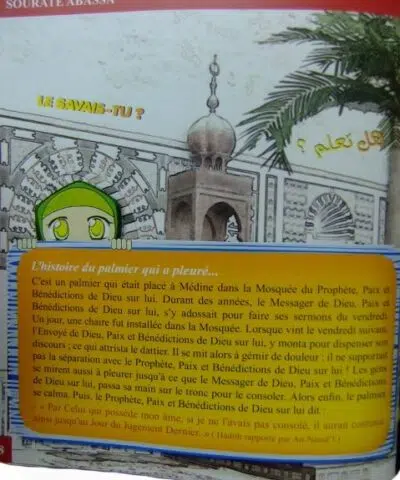 SOURATE ABASSA
LE SAVAIS-TU ?
هل تعلم ؟
L'histoire du palmier qui a pleuré...
C'est un palmier qui était placé à Médine dans la Mosquée du Prophète, Paix et
Bénédictions de Dieu sur lui. Durant des années, le Messager de Dieu, Paix et
Bénédictions de Dieu sur lui, s'y adossait pour faire ses sermons du vendredi.
Un jour, une chaire fut installée dans la Mosquée. Lorsque vint le vendredi suivant,
l'Envoyé de Dieu, Paix et Bénédictions de Dieu sur lui, y monta pour dispenser son
discours ; ce qui attrista le dattier. Il se mit alors à gémir de douleur : il ne supportait
pas la séparation avec le Prophète, Paix et Bénédictions de Dieu sur lui ! Les gens
se mirent aussi à pleurer jusqu'à ce que le Messager de Dieu, Paix et Bénédictions
de Dieu sur lui, passa sa main sur le tronc pour le consoler. Alors enfin, le palmier
se calma. Puis, le Prophète, Paix et Bénédictions de Dieu sur lui dit :
« Par Celui qui possède mon âme, si je ne l'avais pas consolé, il aurait continué
ainsi jusqu'au Jour du Jugement Dernier. » ( Hadith rapporté par An-Nasâ'î )
8